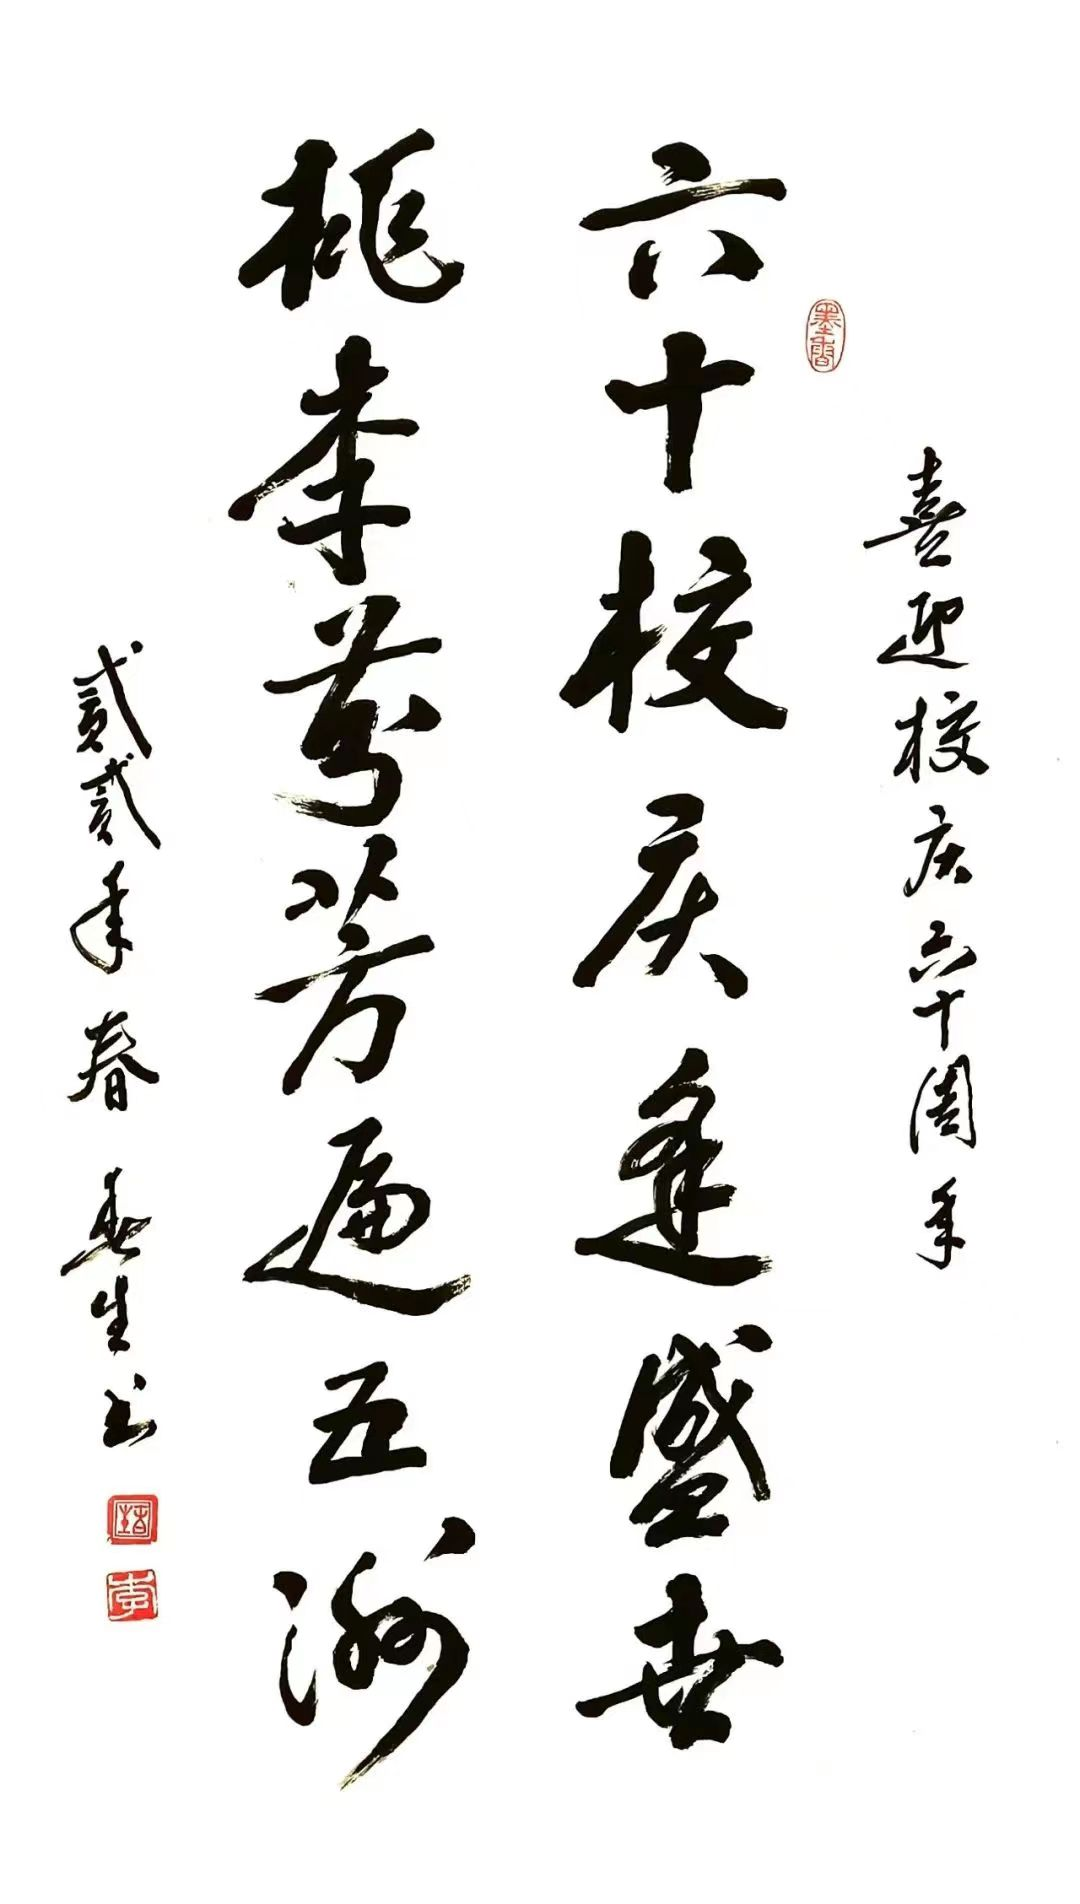 喜迎校庆六十周年
墨香
六十校庆逢盛世
桃李芬芳遍五洲
贰贰年春 生书
李